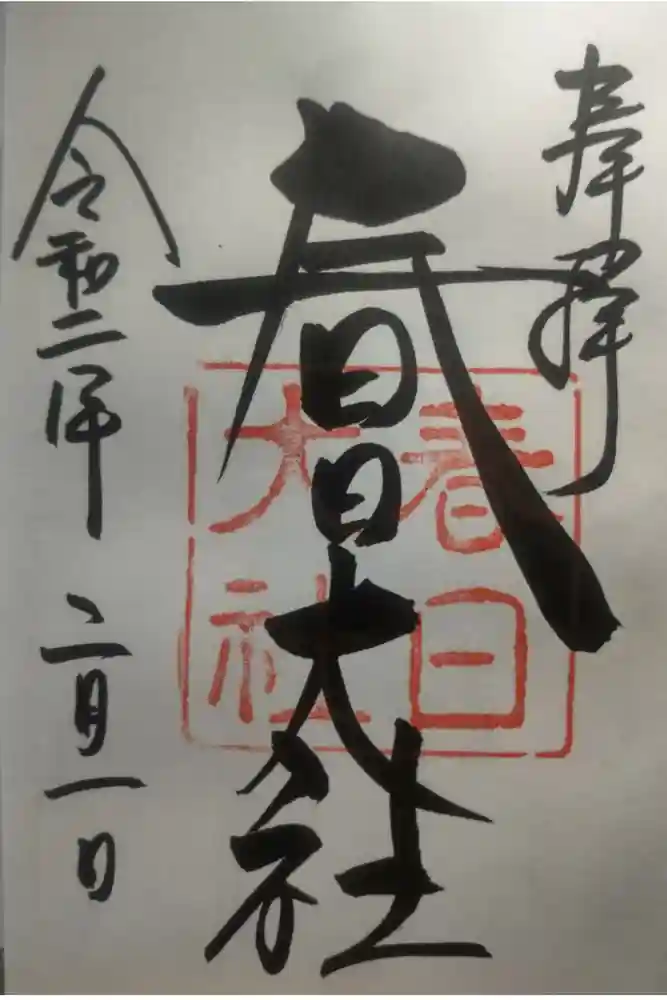 奉拝
春日大社
春日
大社
令和二年
二月一日